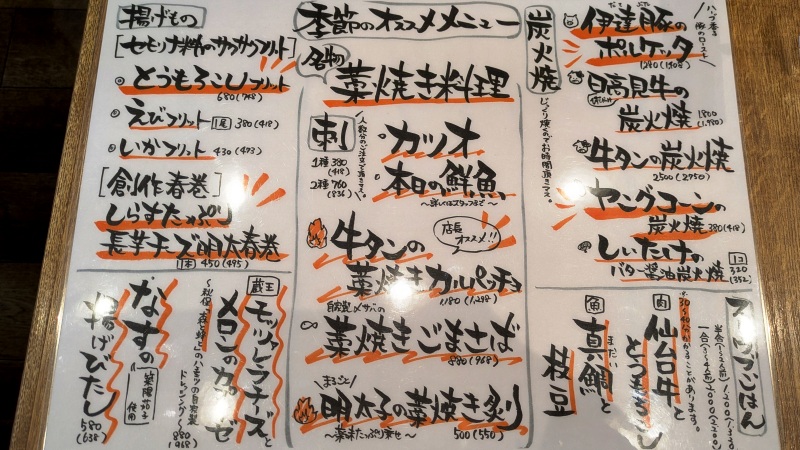 揚げもの
[セモリナ粉のサクサクフリット]
とうもろこしフリット
680(748)
えびフリット 1尾 380(418)
いかフリット 430(473)
[創作春巻]
しらすたっぷり
長芋チーズ明太春巻
1本 450(495)
季節のオススメメニュー
名物
藁焼き料理
刺
人数分のご注文で頂きます。
1種 380
(418)
2種 760
(836)
カツオ
本日の鮮魚
〜詳しくはスタッフまで〜
店長
オススメ!!
牛タンの
藁焼きカルパッチョ
1180(1,298)
自家製〆サバの
藁焼きごまさば
880(968)
まるごと
明太子の藁焼き炙り
〜薬味たっぷり乗せ〜
500(550)
炭火焼
じっくり焼くのでお時間頂きます。
伊達豚の
ポルケッタ
ハーブ香る
豚のロースト
日高見牛の
炭火焼
1800
(1,980)
牛タンの炭火焼
2500(2750)
ヤングコーンの
炭火焼 380(418)
しいたけの
バター醤油炭火焼
1コ
320
(352)
蔵王
モッツァレラチーズと
メロンのカプレーゼ
880
(968)
なすの
揚げびたし
使用
580
(638)
半合(1〜2人前)
一合(3〜4人前) 2000(2200)
肉
仙台牛と
とうもろこし
魚
まだい
真鯛と
枝豆